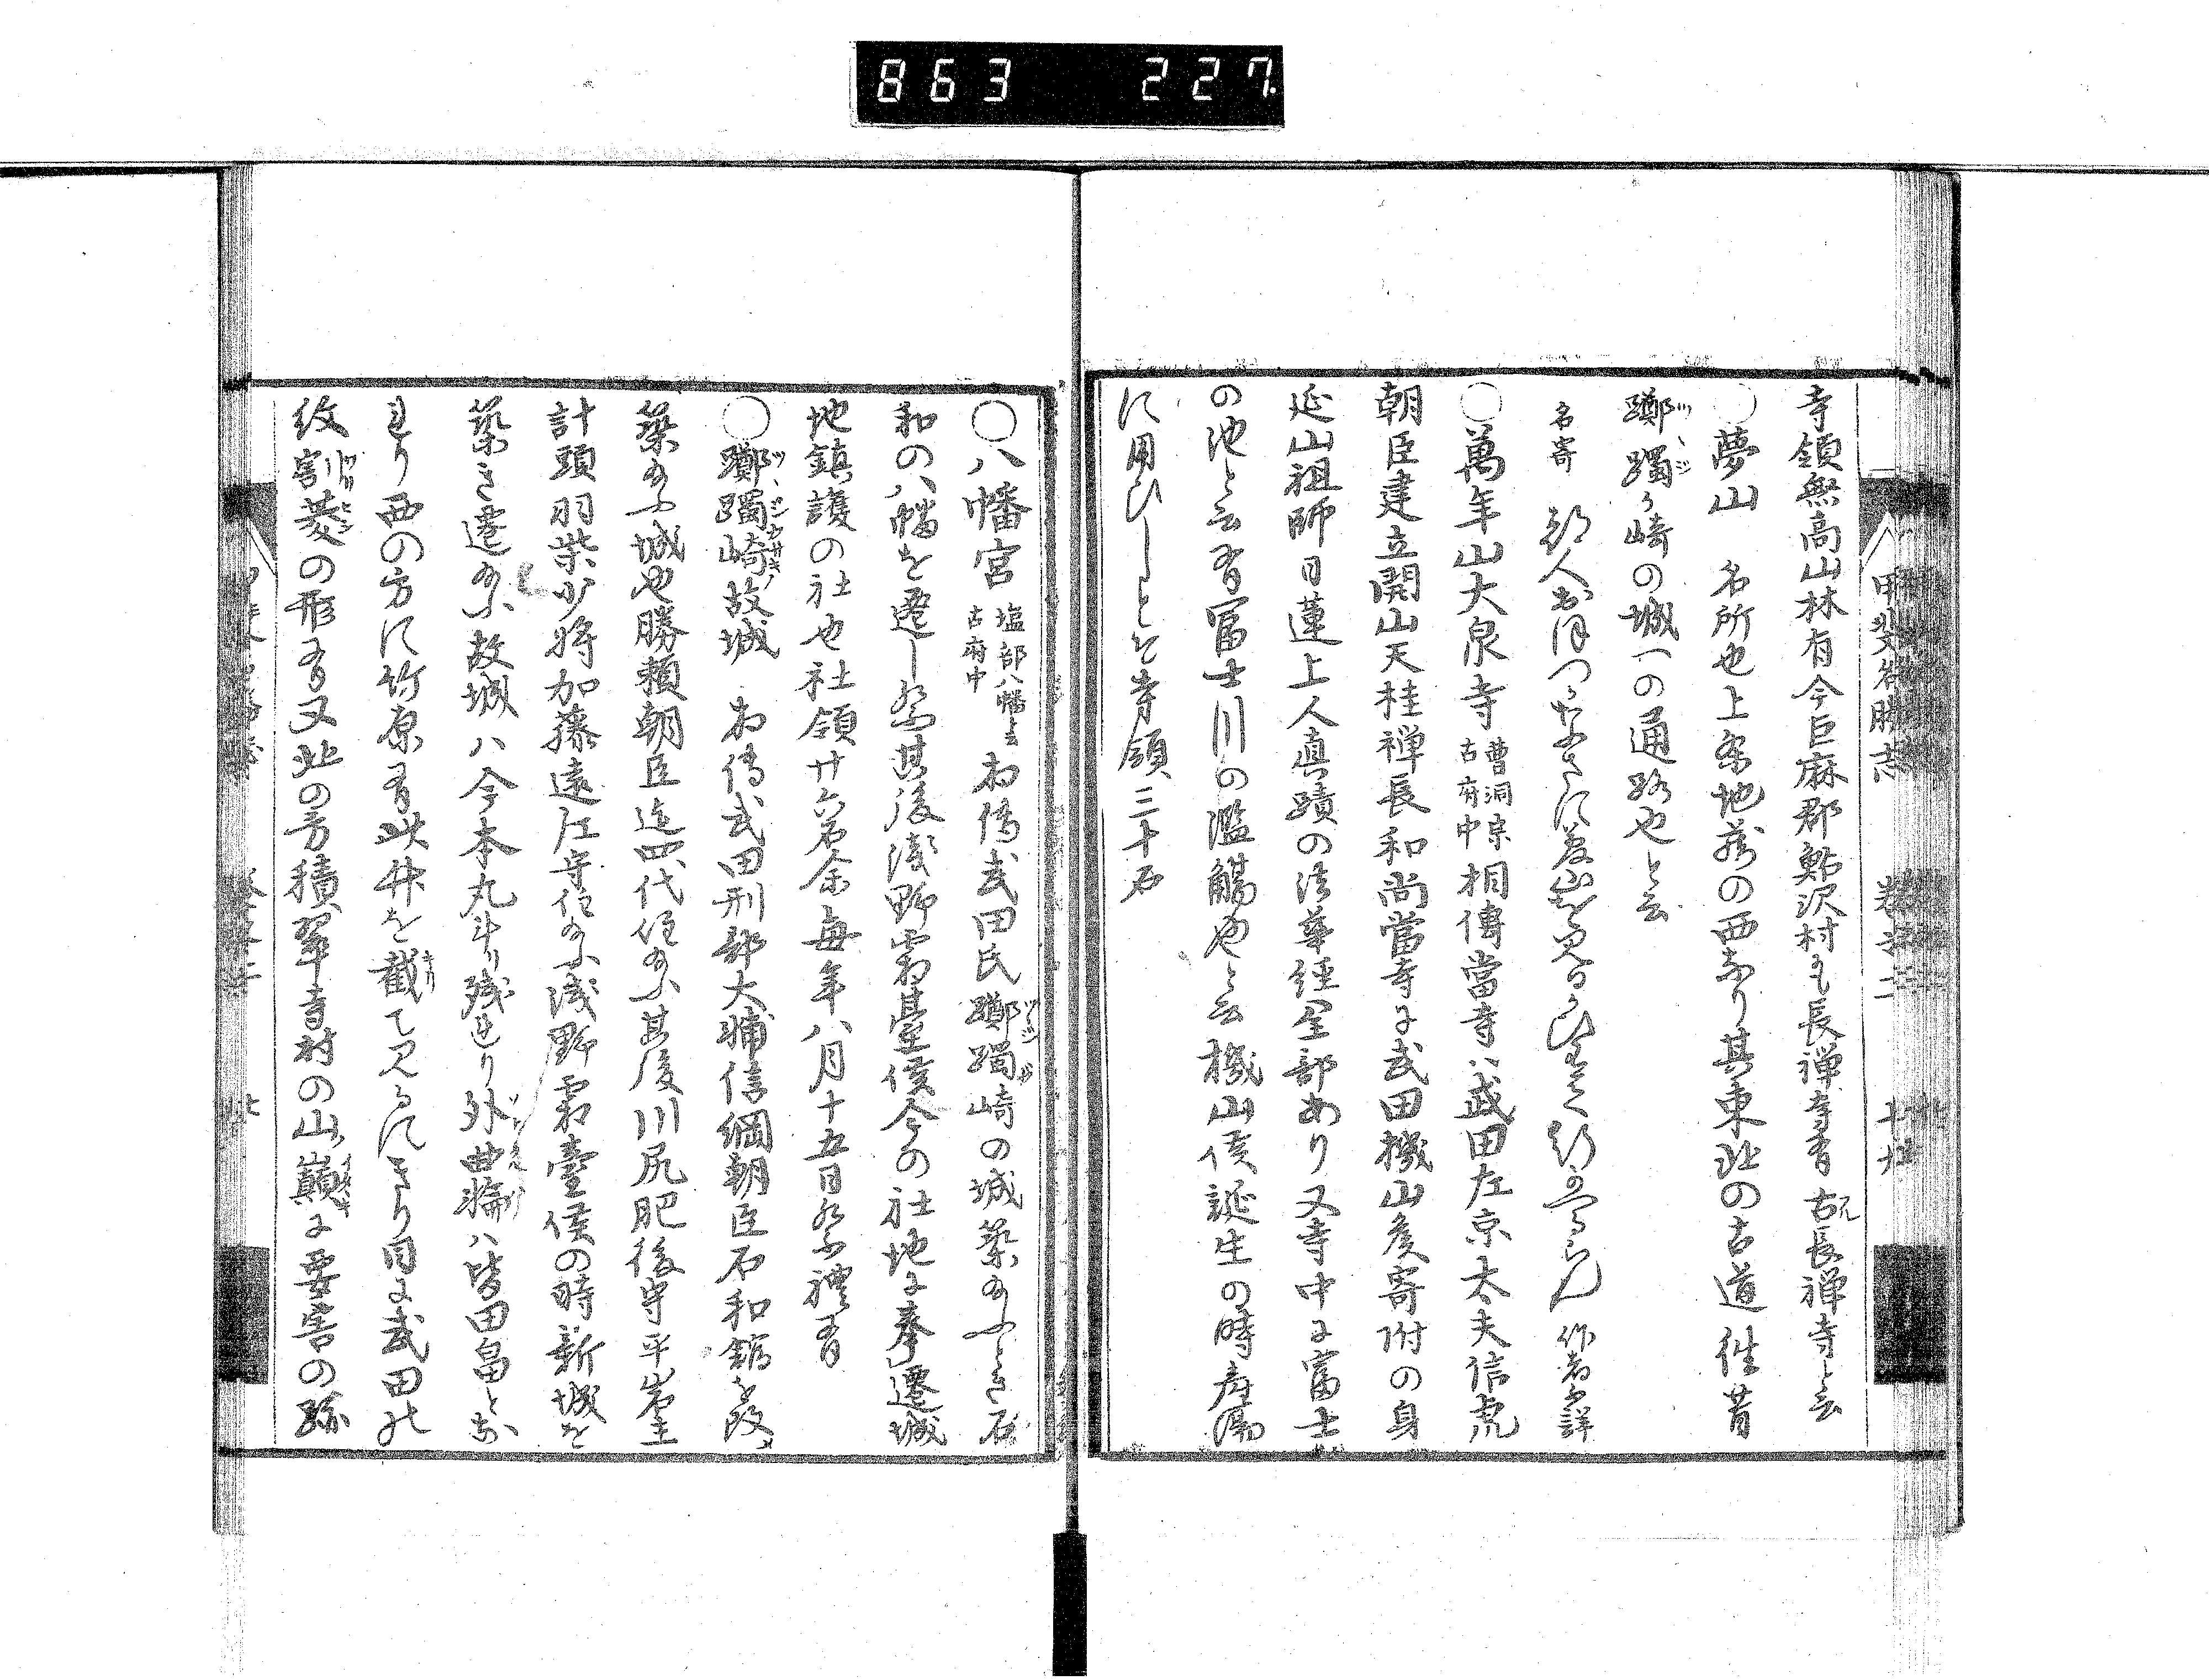 863 227
甲斐名勝志 巻之二
寺領無高山林有今巨麻郡鮎沢村にも長禅寺有古長禅寺と云
○夢山 名所也上条地蔵の西なり其東北の古道往昔
躑躅ヶ崎の城一の通路也と云
名寄 作者不詳
○萬年山大泉寺 曹洞宗 古府中 相傳當寺ハ武田左京太夫信虎
朝臣建立開山天桂禅長和尚當寺に武田機山侯寄附の身
延山祖師日蓮上人真蹟の法華経全部あり又寺中に富士
の池と云有冨士川の濫觴也と云機山侯誕生の時産湯
に用ひしとそ寺領三十石
○八幡宮 塩部八幡と云 古府中 相傳武田氏躑躅崎の城築玉ふとき石
和の八幡を遷し祭其後淺野霜臺侯今の社地に奉遷城
地鎮護の社也社領廿六石余毎年八月十五日祭禮有
○躑躅崎故城 相傳武田刑部大輔信綱朝臣石和舘を毀メ
築玉ふ城也勝頼朝臣迄四代住玉ふ其後川尻肥後守平岩主
計頭羽柴少将加藤遠江守住玉ふ淺野霜臺侯の時新城を
築き遷玉ふ故城ハ今本丸斗リ残れり外曲輪ハ皆田畠とな
れり西の方に竹原有此竹を截て見るにきり口に武田の
紋割菱の形有又北の方積翠寺村の山巓に要害の跡